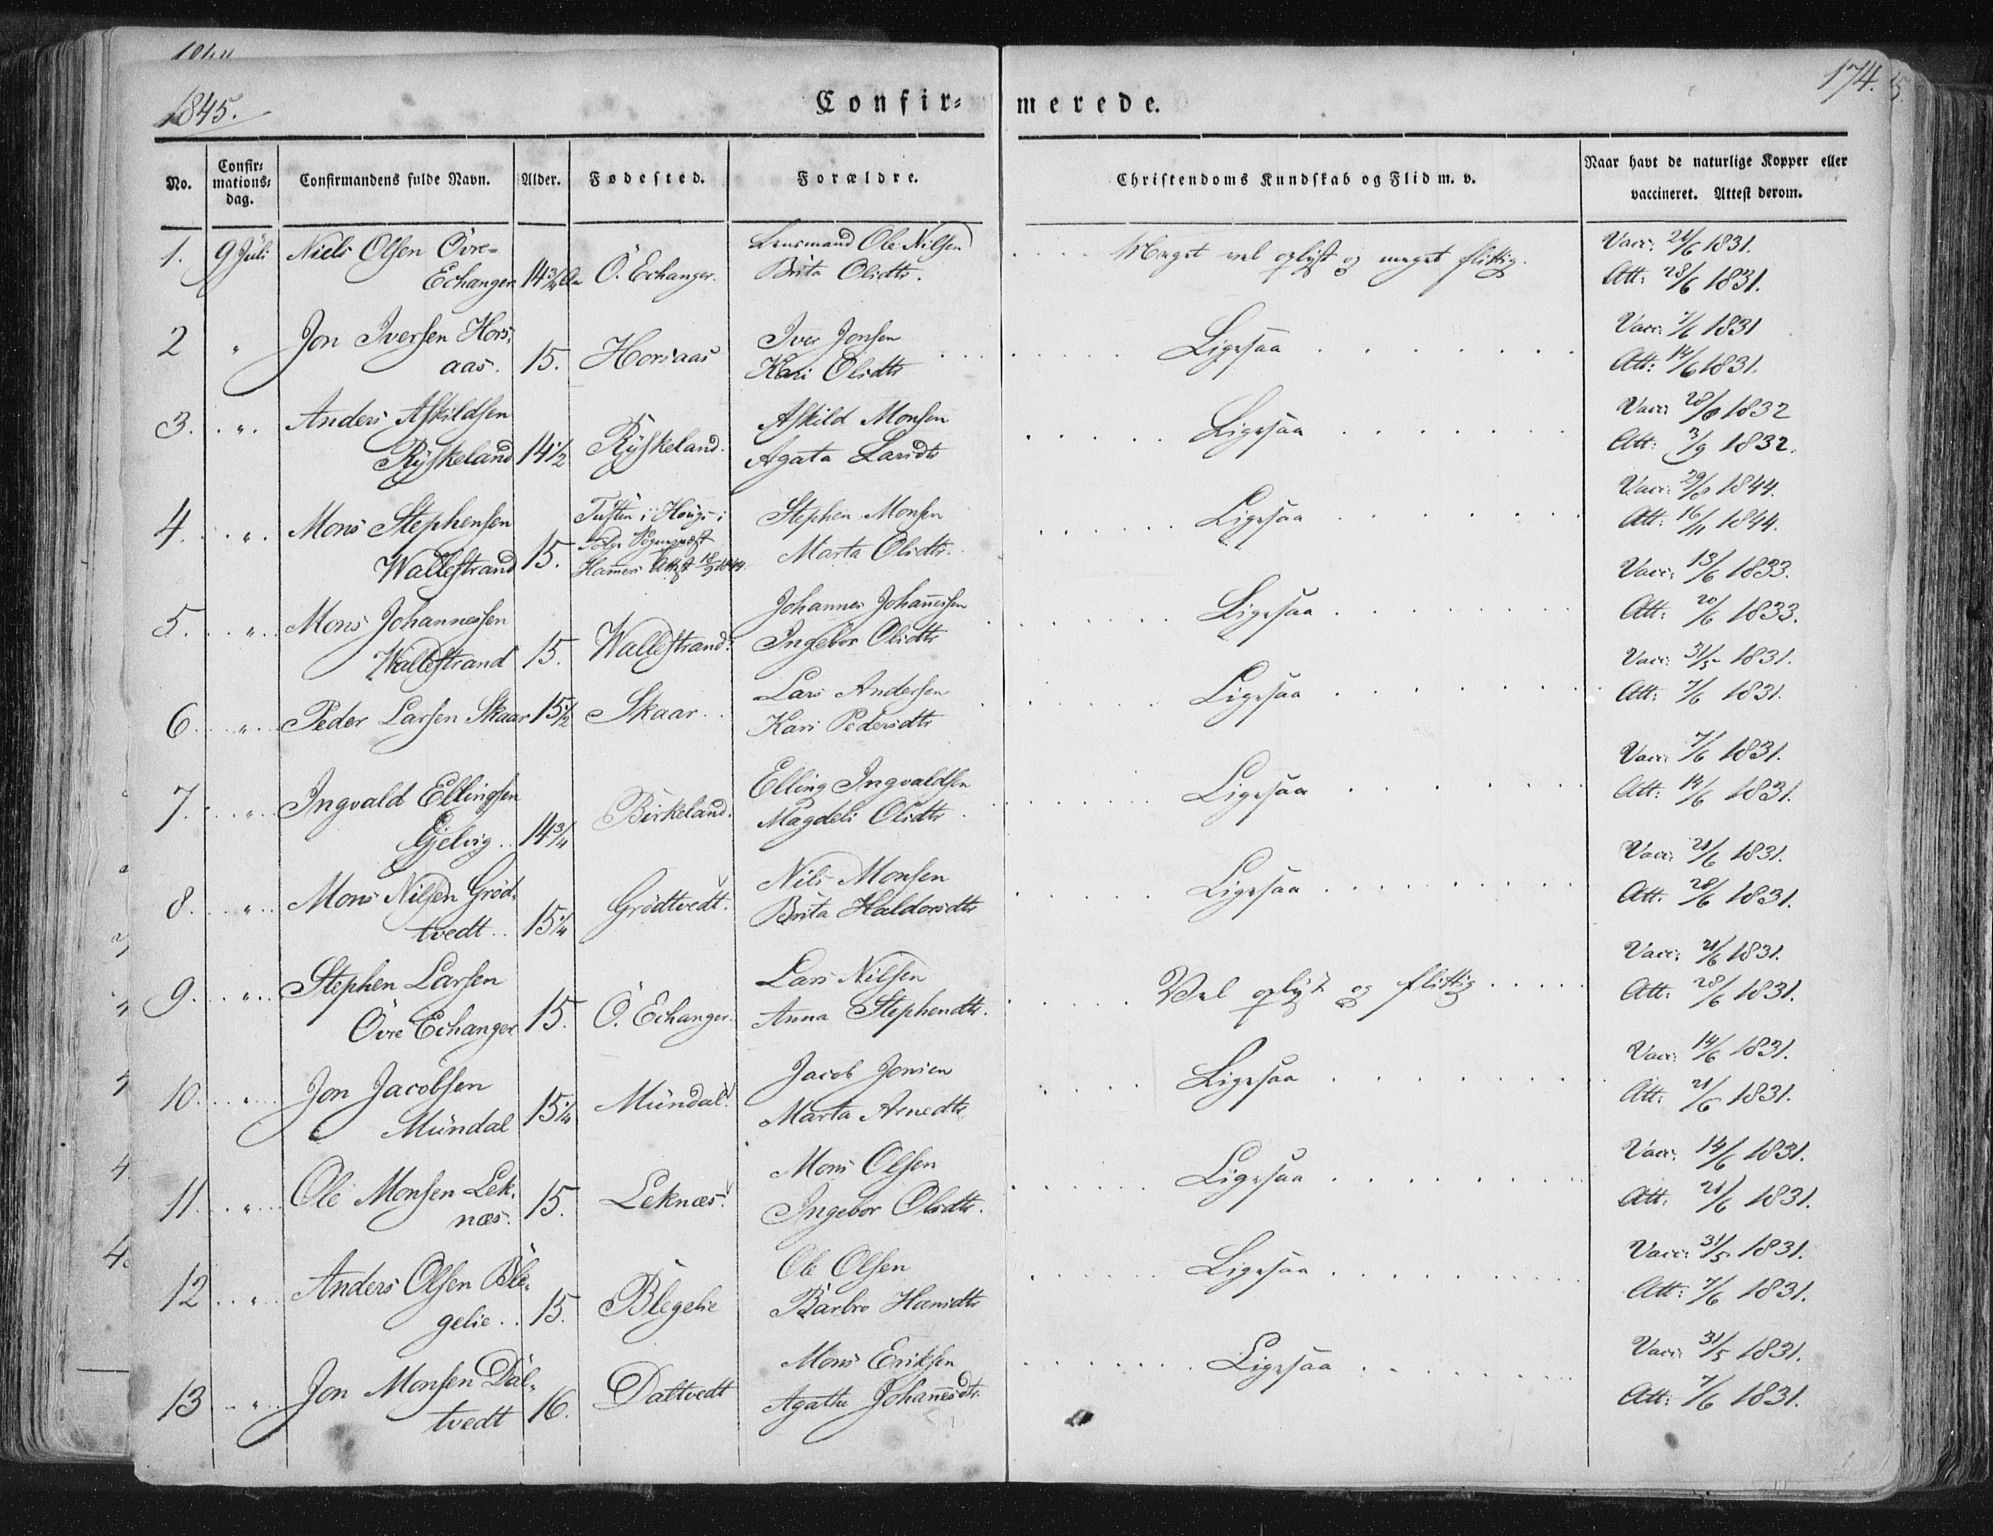 1845.
Confir= merede.
174.
No.
Confir= mations= dag.
Confirmandens fulde Navn.
Alder.
Fødested.
Forældre.
Christendoms Kundskab og Flid m. v.
Naar havt de naturlige Kopper eller vaccineret. Attest derom.
1. 9 Juli Niels Olsen Övre= 14 3/4 Ö. Echanger. Lensmand Ole Nilsen Meget vel oplyst og meget flittig. Vacc: 21/6 1831.
Echanger Brita Olsdtr. Att: 28/6 1831.
2 " Jon Iversen Hors= 15. Horsaas Iver Jonsen Ligesaa Vacc: 7/6 1831
aas. Kari Olsdtr Att: 14/6 1831.
3. " Anders Askildsen Askild Monsen Ligesaa Vacc: 28/8 1832
Ryskeland 14 1/2 Ryskeland. Agata Larsdtr Att: 3/9 1832.
4. " Mons Stephensen Tuften i Houg i Stephen Monsen Ligesaa Vacc: 29/8 1844.
Wallestrand 15. følge Sognepræst Marta Olsdtr. Att: 1844.
Hamers Attest 1844.
5. " Mons Johannessen Johannes Johannessen Ligesaa Vacc: 13/6 1833.
Wallestrand 15. Wallestrand. Ingebor Olsdtr Att: 20/6 1833.
6 " Peder Larsen Skaar 15 1/2 Skaar. Lars Andersen Ligesaa Vacc: 31/5 1831.
Kari Pedersdtr Att: 7/6 1831.
7. " Ingvald Ellingsen Birkeland. Elling Ingvaldsen Ligesaa Vacc: 7/6 1831.
Gjelvig 14 3/4 Magdeli Olsdtr Att: 14/6 1831.
8. " Mons Nilsen Gröd= Grödtvedt. Nils Monsen Ligesaa Vacc: 21/6 1831.
tvedt 15 1/4 Brita Haldorsdtr Att. 28/6 1831.
9. " Stephen Larsen Lars Nilsen Vel oplyst og flittig Vacc: 21/6 1831.
Övre Echanger 15. Ö. Echanger. Anna Stephensdtr. Att: 28/6 1831.
10. " Jon Jacobsen Mündal. Jacob Jonsen Ligesaa Vacc: 14/6 1831.
Mündal 15 1/4 Marta Arnedtr Att: 21/6 1831.
11. " Ole Monsen Lek= 15. Leknæs. Mons Olsen Ligesaa Vacc: 14/6 1831.
næs. Ingebor Olsdtr. Att: 21/6 1831.
12 " Anders Olsen Ble= Ole Olsen Ligesaa Vacc: 31/5 1831.
gelie 15. Blegelie Barbro Hansdtr Att: 7/6 1831.
13 " Jon Monsen Dal= Mons Eriksen Ligesaa Vacc: 31/5 1831.
tvedt 16. Daltvedt Agatha Johannesdtr. Att: 7/6 1831.